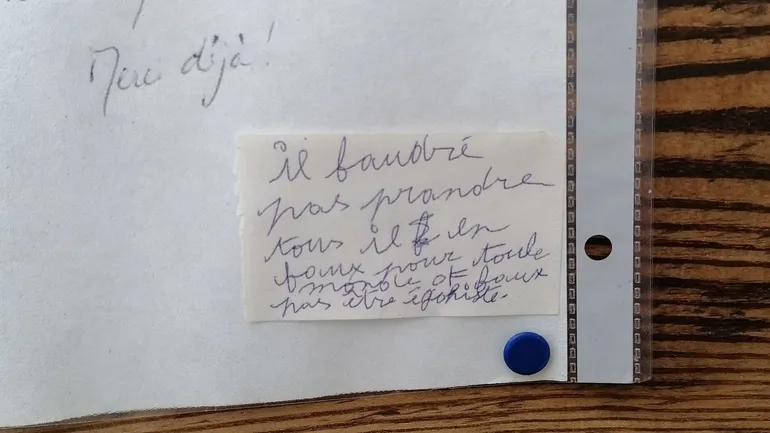 Merci déjà!
il faudré
pas prandre
tous il en
faux pour toule
monde et faux
pas être égoiste.